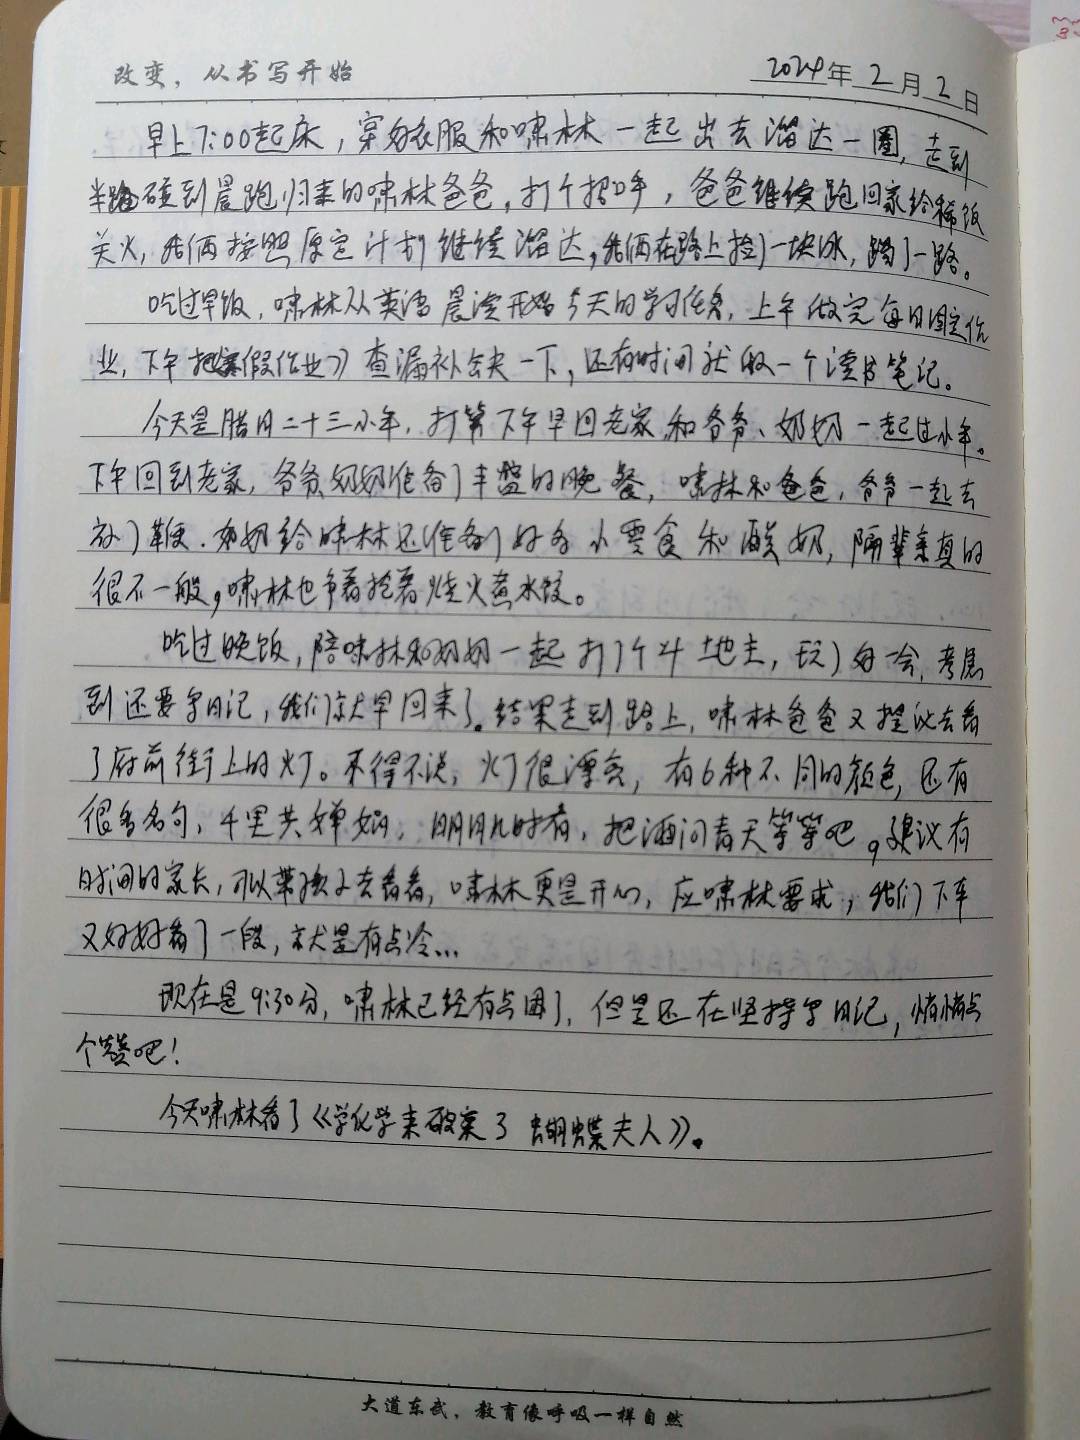 改变，从书写开始
2024年2月2日
早上7:00起床，穿好衣服和啸林一起出去溜达一圈，走到
半路碰到晨跑归来的啸林爸爸，打个招呼，爸爸继续跑回家给稀饭
关火，我俩按照原定计划继续溜达，我俩在路上捡了一块冰，踢了一路。
吃过早饭，啸林从英语晨读开始今天的学习任务，上午做完每日固定作
业，下午把寒假作业》查漏补缺一下，还有时间就做一个读书笔记。
今天是腊月二十三小年，打算下午早回老家和爷爷、奶奶一起过小年。
下午回到老家，爷爷奶奶准备了丰盛的晚餐，啸林和爸爸，爷爷一起去
放了鞭．奶奶给啸林还准备了好多小零食和酸奶，隔辈亲真的
很不一般，啸林也争着抢着烧火煮水饺。
吃过晚饭，陪啸林和奶奶一起打了个斗地主，玩了好一会，考虑
到还要写日记，我们就早回来了。结果走到路上，啸林爸爸又提议去看
了府前街上的灯。不得不说，灯很漂亮，有6种不同的颜色，还有
很多名句，千里共婵娟。明月几时有，把酒问青天等等吧，建议有
时间的家长，可以带孩子去看看，啸林更是开心，应啸林要求，我们下车
又好好看了一段，就是有点冷...
现在是9:30分，啸林已经有点困了，但是还在坚持写日记，悄悄点
个赞吧！
今天啸林看了《学化学来破案3 蝴蝶夫人》。
大道东武，教育像呼吸一样自然